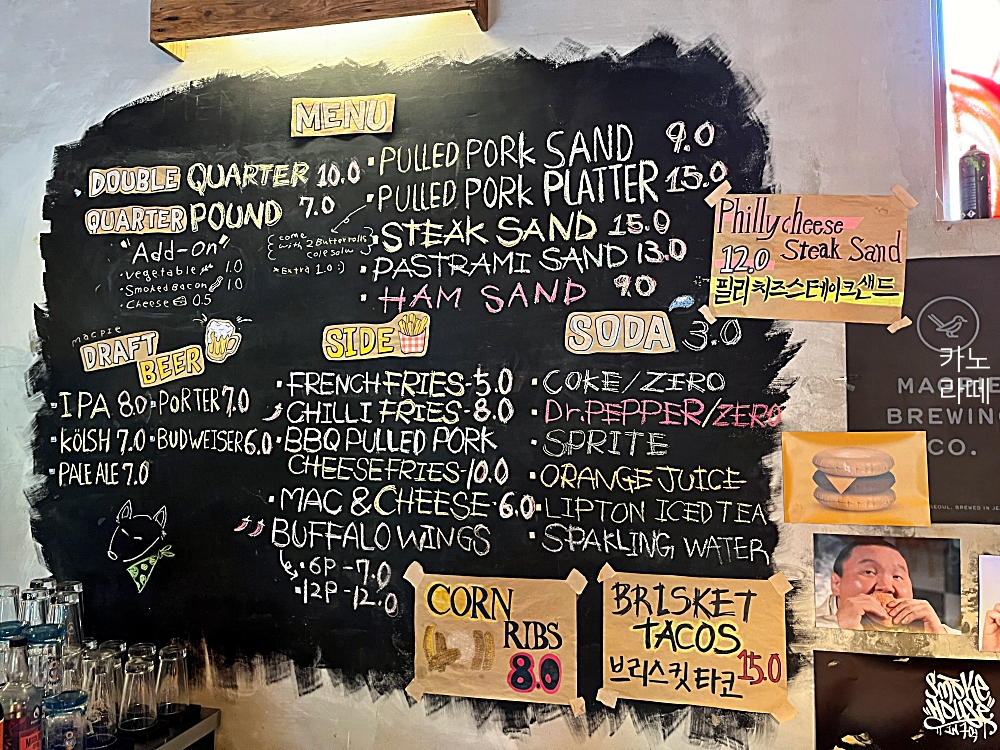 MENU
DOUBLE QUARTER 10.0
QUARTER POUND 7.0
"Add-on"
• vegetable 1.0
• Smoked Bacon 1.0
• Cheese 0.5
• PULLED PORK SAND 9.0
• PULLED PORK PLATTER 15.0
come with 2 Butter rolls
cole slow
*Extra 1.0 :)
• STEAK SAND 15.0
• PASTRAMI SAND 13.0
• HAM SAND 9.0
Philly cheese
12.0 Steak Sand
필리치즈스테이크샌드
macpie
DRAFT
BEER
• IPA 8.0 • PORTER 7.0
• KÖLSH 7.0 • BUDWEISER 6.0
• PALE ALE 7.0
SIDE
• FRENCH FRIES - 5.0
• CHILLI FRIES - 8.0
• BBQ PULLED PORK
CHEESE FRIES - 10.0
• MAC & CHEESE - 6.0
• BUFFALO WINGS
• 6P - 7.0
• 12P - 12.0
SODA 3.0
• COKE / ZERO
• Dr. PEPPER / ZERO
• SPRITE
• ORANGE JUICE
• LIPTON ICED TEA
• SPAKLING WATER
CORN
RIBS
8.0
BRISKET
TACOS
브리스킷타코 15.0
카노
라떼
MAGPIE
BREWING
CO.
SEOUL, BREWED IN JE
SMOKE
HOUSE